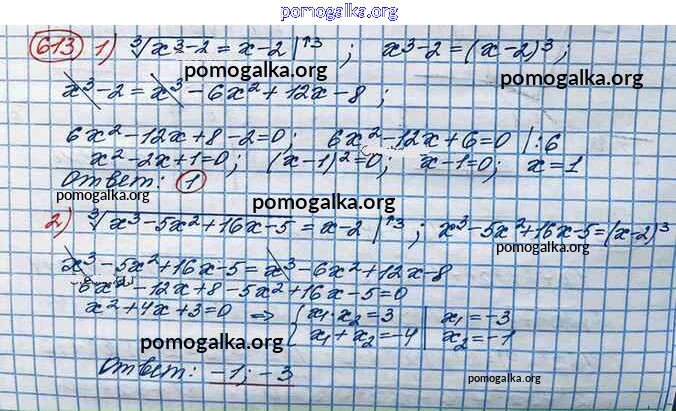 pomogalka.org
613 1) ∛(x³-2) = x-2 |↑3 ; x³-2 = (x-2)³ ;
pomogalka.org pomogalka.org
x³-2 = x³-6x²+12x-8 ;
6x²-12x+8-2=0; 6x²-12x+6=0 |:6
x²-2x+1=0; (x-1)²=0; x-1=0; x=1
Ответ: 1
pomogalka.org pomogalka.org pomogalka.org
2) ∛(x³-5x²+16x-5) = x-2 |↑3 ; x³-5x²+16x-5=(x-2)³
pomogalka.org
x³-5x²+16x-5=x³-6x²+12x-8
6x²-12x+8-5x²+16x-5=0
x²+4x+3=0 ⇒ { x₁·x₂=3 | x₁=-3
x₁+x₂=-4 | x₂=-1
pomogalka.org pomogalka.org
Ответ: -1; -3
pomogalka.org